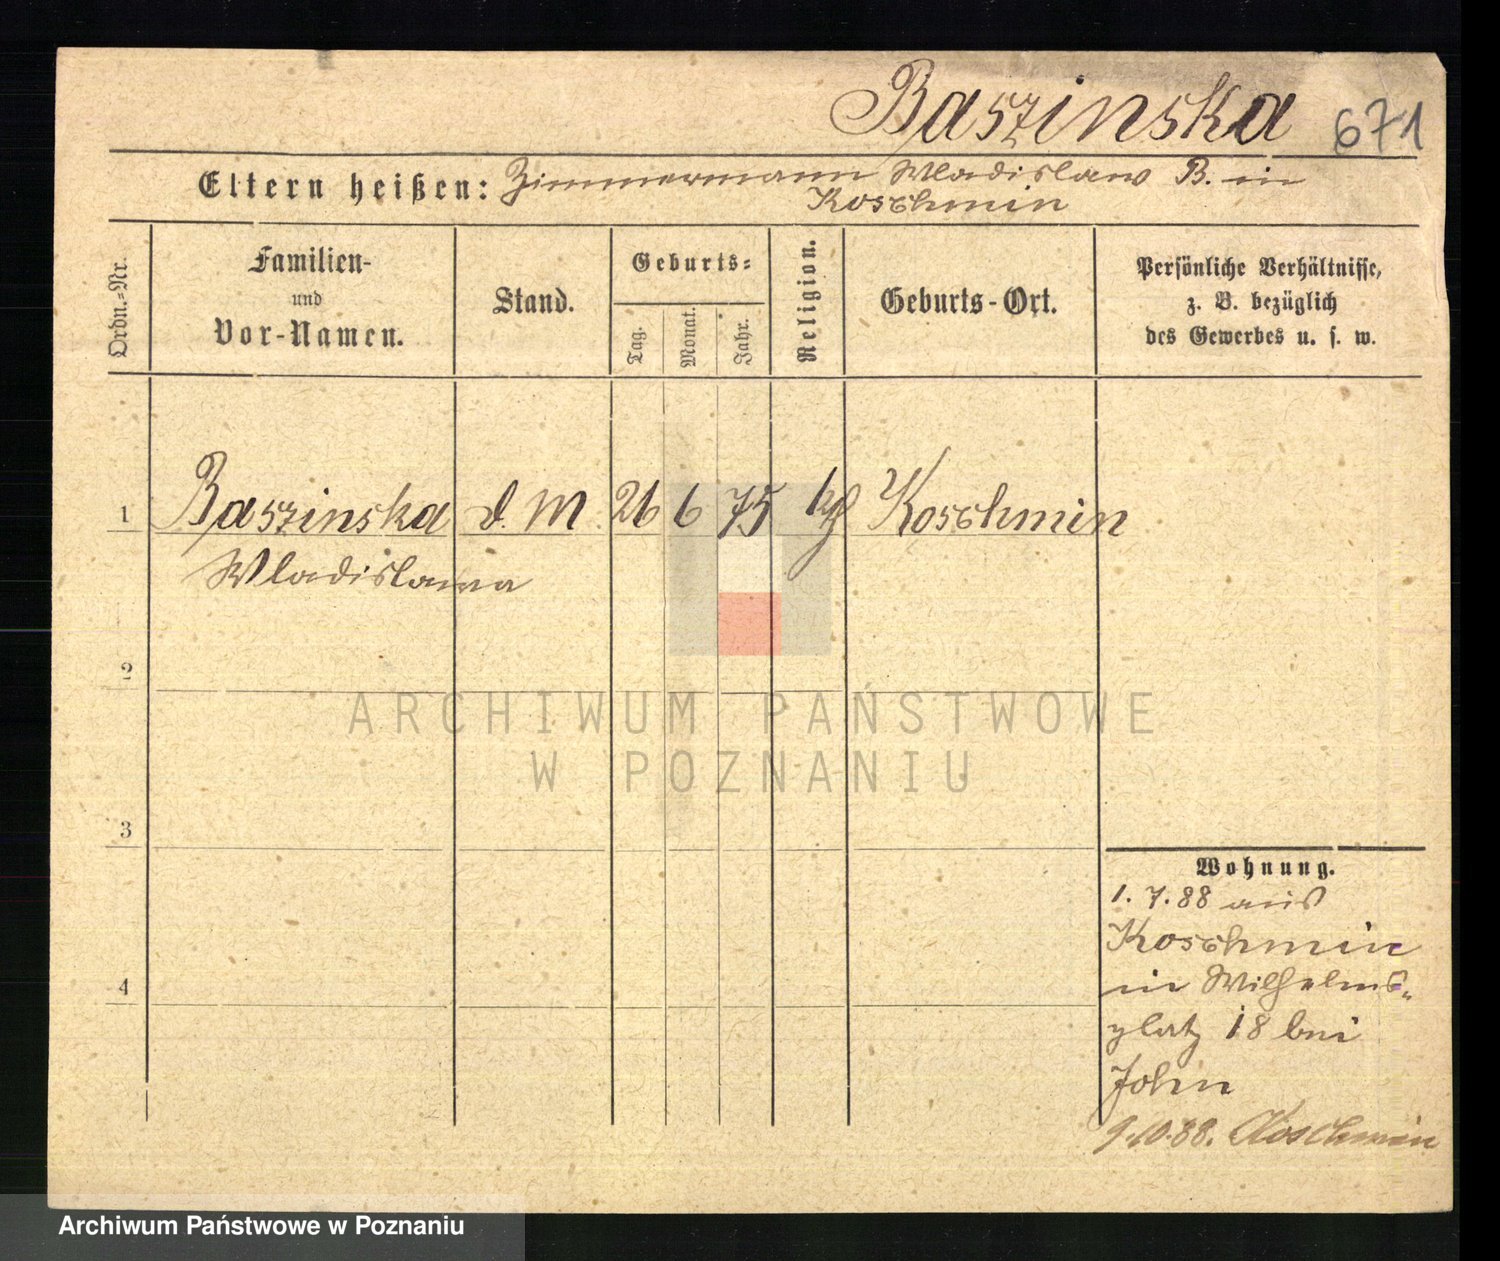 Baszinska 671
Eltern heißen: Zimmermann Wladislaw B. in
Koschmin
Ordn.=Nr.
Familien-
und
Vor-Namen.
Stand.
Geburts=
Tag.
Monat.
Jahr.
Religion.
Geburts-Ort.
Persönliche Verhältnisse,
z. B. bezüglich
des Gewerbes u. s. w.
1 Baszinska d. M 26 6 75 kth Koschmin
Wladislawa
2
ARCHIWUM PAŃSTWOWE
W POZNANIU
3
4
Wohnung.
1. 7. 88 aus
Koschmin
in Wilhelms=
platz 18 bei
John
9.10.88. Koschmin
Archiwum Państwowe w Poznaniu